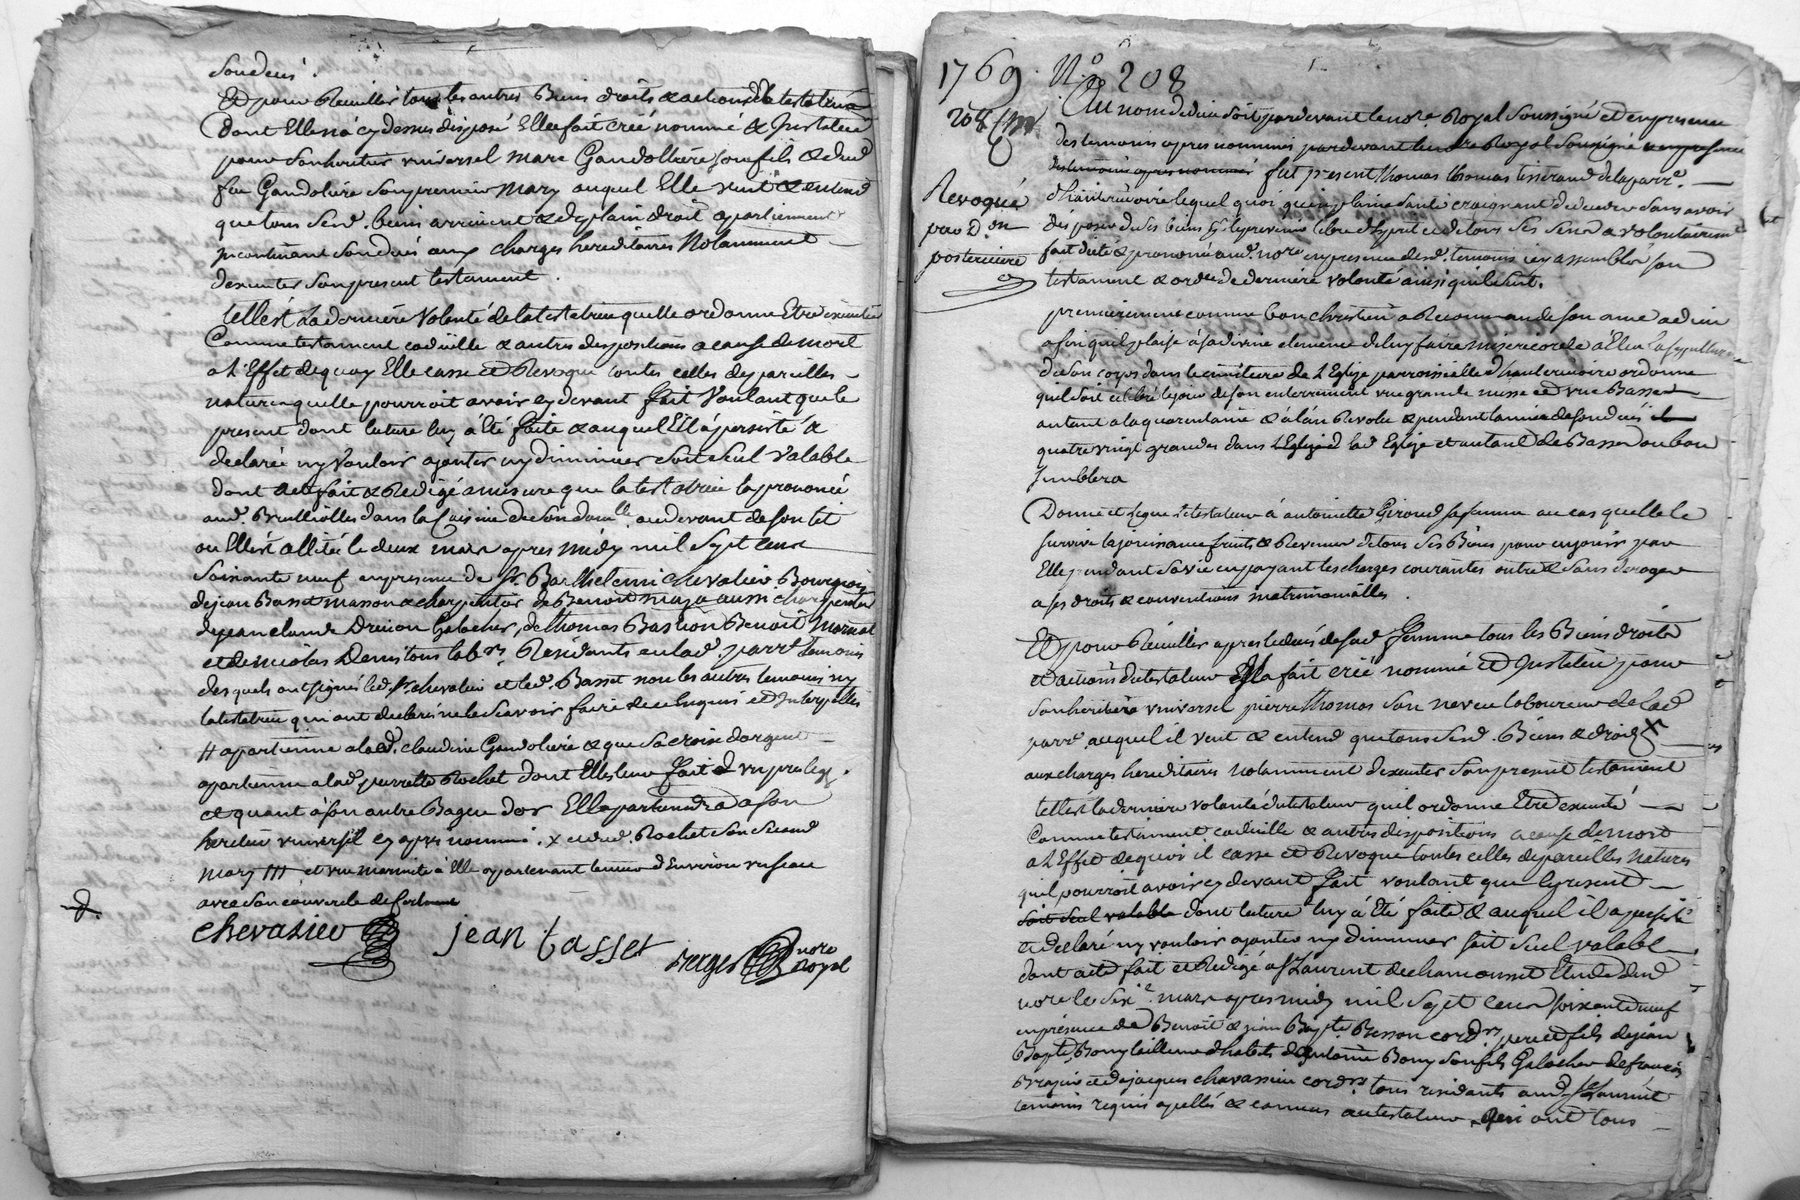 son deces.
Et pour Recuillir tous les autres Biens droits & actions de la testatrice
Dont Elle n'a cy dessus disposé Elle a fait créé nommé & Institué
pour son heritier universel marc Gandoliere son fils & dud.
feu Gandoliere son premier mary auquel Elle veut & entend
que tous sesd. biens arrivent & de plain droit appartiennent
Incontinent son deces aux charges hereditaires Notamment
dexecuter son present testament.
telle est la derniere Volonté de la testatrice quelle ordonne Etre executée
Comme testament codicille & autres dispositions a cause de mort
a l'Effet de quoy Elle casse et Revoque toutes celles de pareilles
nature quelle pourroit avoir cy devant fait Voulant que le
present dont lecture luy a été faite & auquel Ell a persisté &
declaré ny Vouloir ajouter ny diminuer soit seul Valable
dont acte fait & Redigé a mesure que la testatrice la prononcé
aud. Brullioles dans la Cuisine de son domlle. audevant de son lit
ou Elle est allitée le deux mars apres midy mil Sept Cent
Soixante neuf en presence de sr. Barthelemi chevalier Bourgeois
de jean Basset masson & charpentier de Benoit maza aussi charpentier
de jean claude Drevon Galocher, de thomas Bastion Benoit Mornat
et de nicolas Denis tous labrs. Residants en lad. parre. temoins
desquels ont signé led. sr. chevalier et led. Basset non les autres temoins ny
la testatrice qui ont declaré ne le Scavoir faire de ce Enquis et Interpellés
// apartienne a lad. claudine Gandoliere & que sa croix dargent
apartienne a lad. pierrette Rochet dont Elle leur fait d un prelegs.
et quant à son autre Bague d'or Elle apartiendra a son
heritier universel cy apres nommé. x et dud. Rochet son second
mary /// et une marmite à Elle appartenant tenant d'Environ un seau
avec son couvercle de
chevalier jean basset nore
Royal
1769. N.o 208
208
Au nom de dieu soit pardevant le nore. Royal Soussigné et en presence
des temoins apres nommés pardevant le nore Royal Soussigné & en presence
des temoins apres nommés fut present thomas thomas tisserand de la parre.
Revoqué
par D.on
posterieure
d'hauterivoire lequel quoi quen plaine santé craignant de deceder sans avoir
disposé de ses biens libre d'Esprit et de tous ses sens a volontairement
fait dicté & prononcé aud. nore. en presence desd. temoins icy assemblés son
testament & ordce. de derniere volonté ainsi quil suit.
premierement comme bon chretien a Recommandé son ame a dieu
afin quil plaise à sa divine clemence de luy faire misericorde a Elu la sepulture
de son corps dans le cimitiere de l'Eglise parroissielle d'hauterivoire ordonne
quil soit celebré le jour de son enterrement une grande messe et une Basse
autant a la quarantaine & a lan Revolu & pendant lannée de son deces
quatre vingt grandes dans l'Eglise d lad Eglise et autant de Basses ou bon
semblera
Donne et Legue le testateur à antoinette Giroud sa femme au cas quelle le
survive la jouissance fruits & Revenus de tous ses Biens pour en jouir par
Elle pendant sa vie en payant les charges courantes outre & sans deroger
a ses droits & conventions matrimonialles.
Et pour Recuillir apres le deces de sad. femme tous les Biens droits
et actions du testateur Il a fait créé nommé et Institué pour
son heritier universel pierre thomas son neveu laboureur de lad
parre. auquel il veut & entend que tous sesd. Biens & droits
aux charges hereditaires notamment dexecuter son present testament
telle est la derniere volonté du testateur quil ordonne Etre executé
Comme testament codicille & autres dispositions a cause de mort
a l'Effet de quoi il casse et Revoque toutes celles de pareilles Natures
quil pourroit avoir cy devant fait voulant que le present
soit seul valable dont lecture luy a été faite & auquel il a persisté
et declaré ny vouloir ajouter ny diminuer soit seul valable
dont acte fait et Redigé a St Laurent de chamousset Etude dud
nore le Six.e mars apres midy mil Sept cent soixante neuf
en presence de Benoit & jean Bapte. Besson cordrs. pere et fils de jean
Bapte. Bony tailleur d'habits d'antoine Bony son fils Galocher de francois
Dragin et de jacques chavassieu cordrs. tous residants aud. St Laurent
temoins requis apellés & connus au testateur, qui ont tous